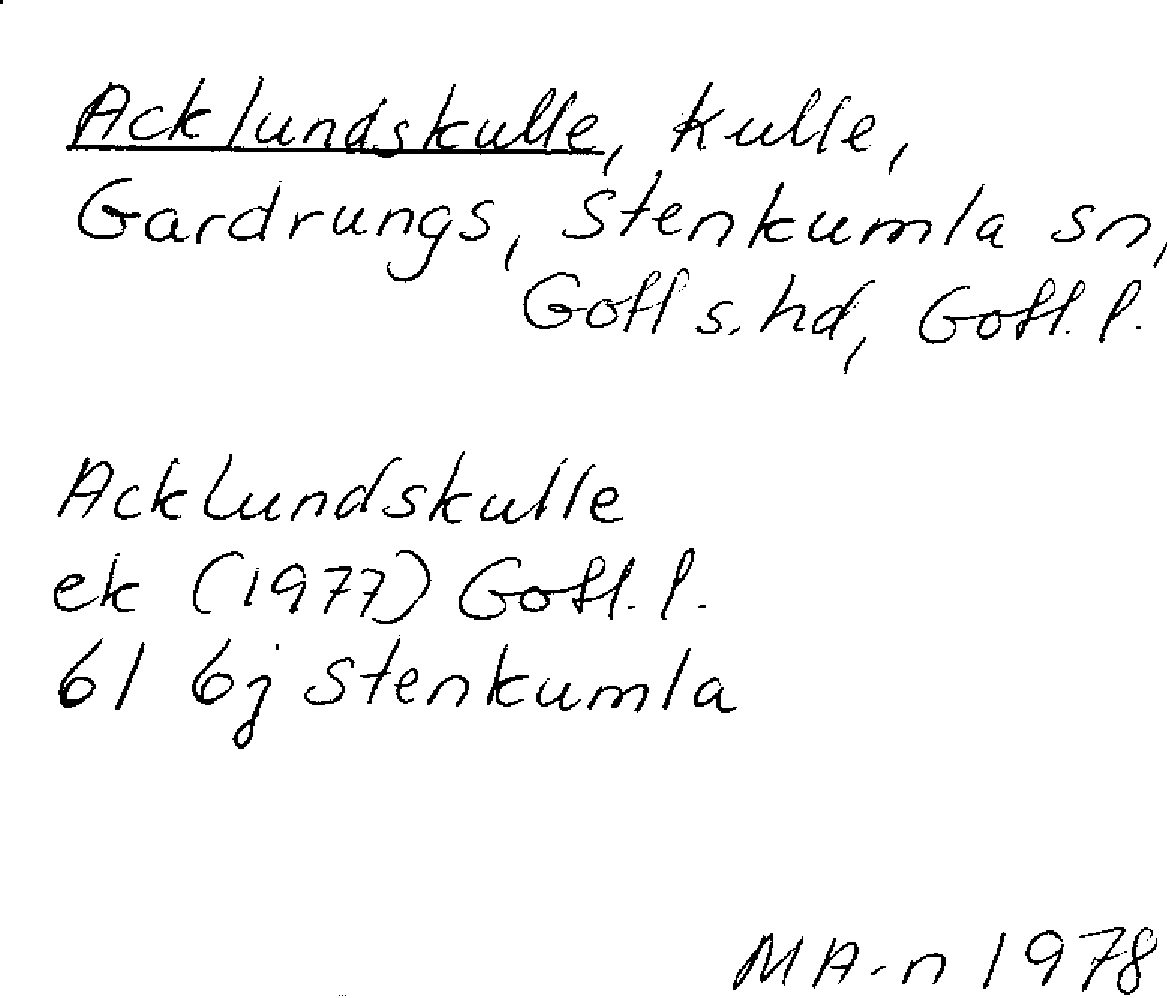 Acklundskulle, kulle,
Gardrungs, Stenkumla sn,
Gotl s. hd, Gotl. l.
Acklundskulle
ek (1977) Gotl. l.
61 6j Stenkumla
MA-n 1978